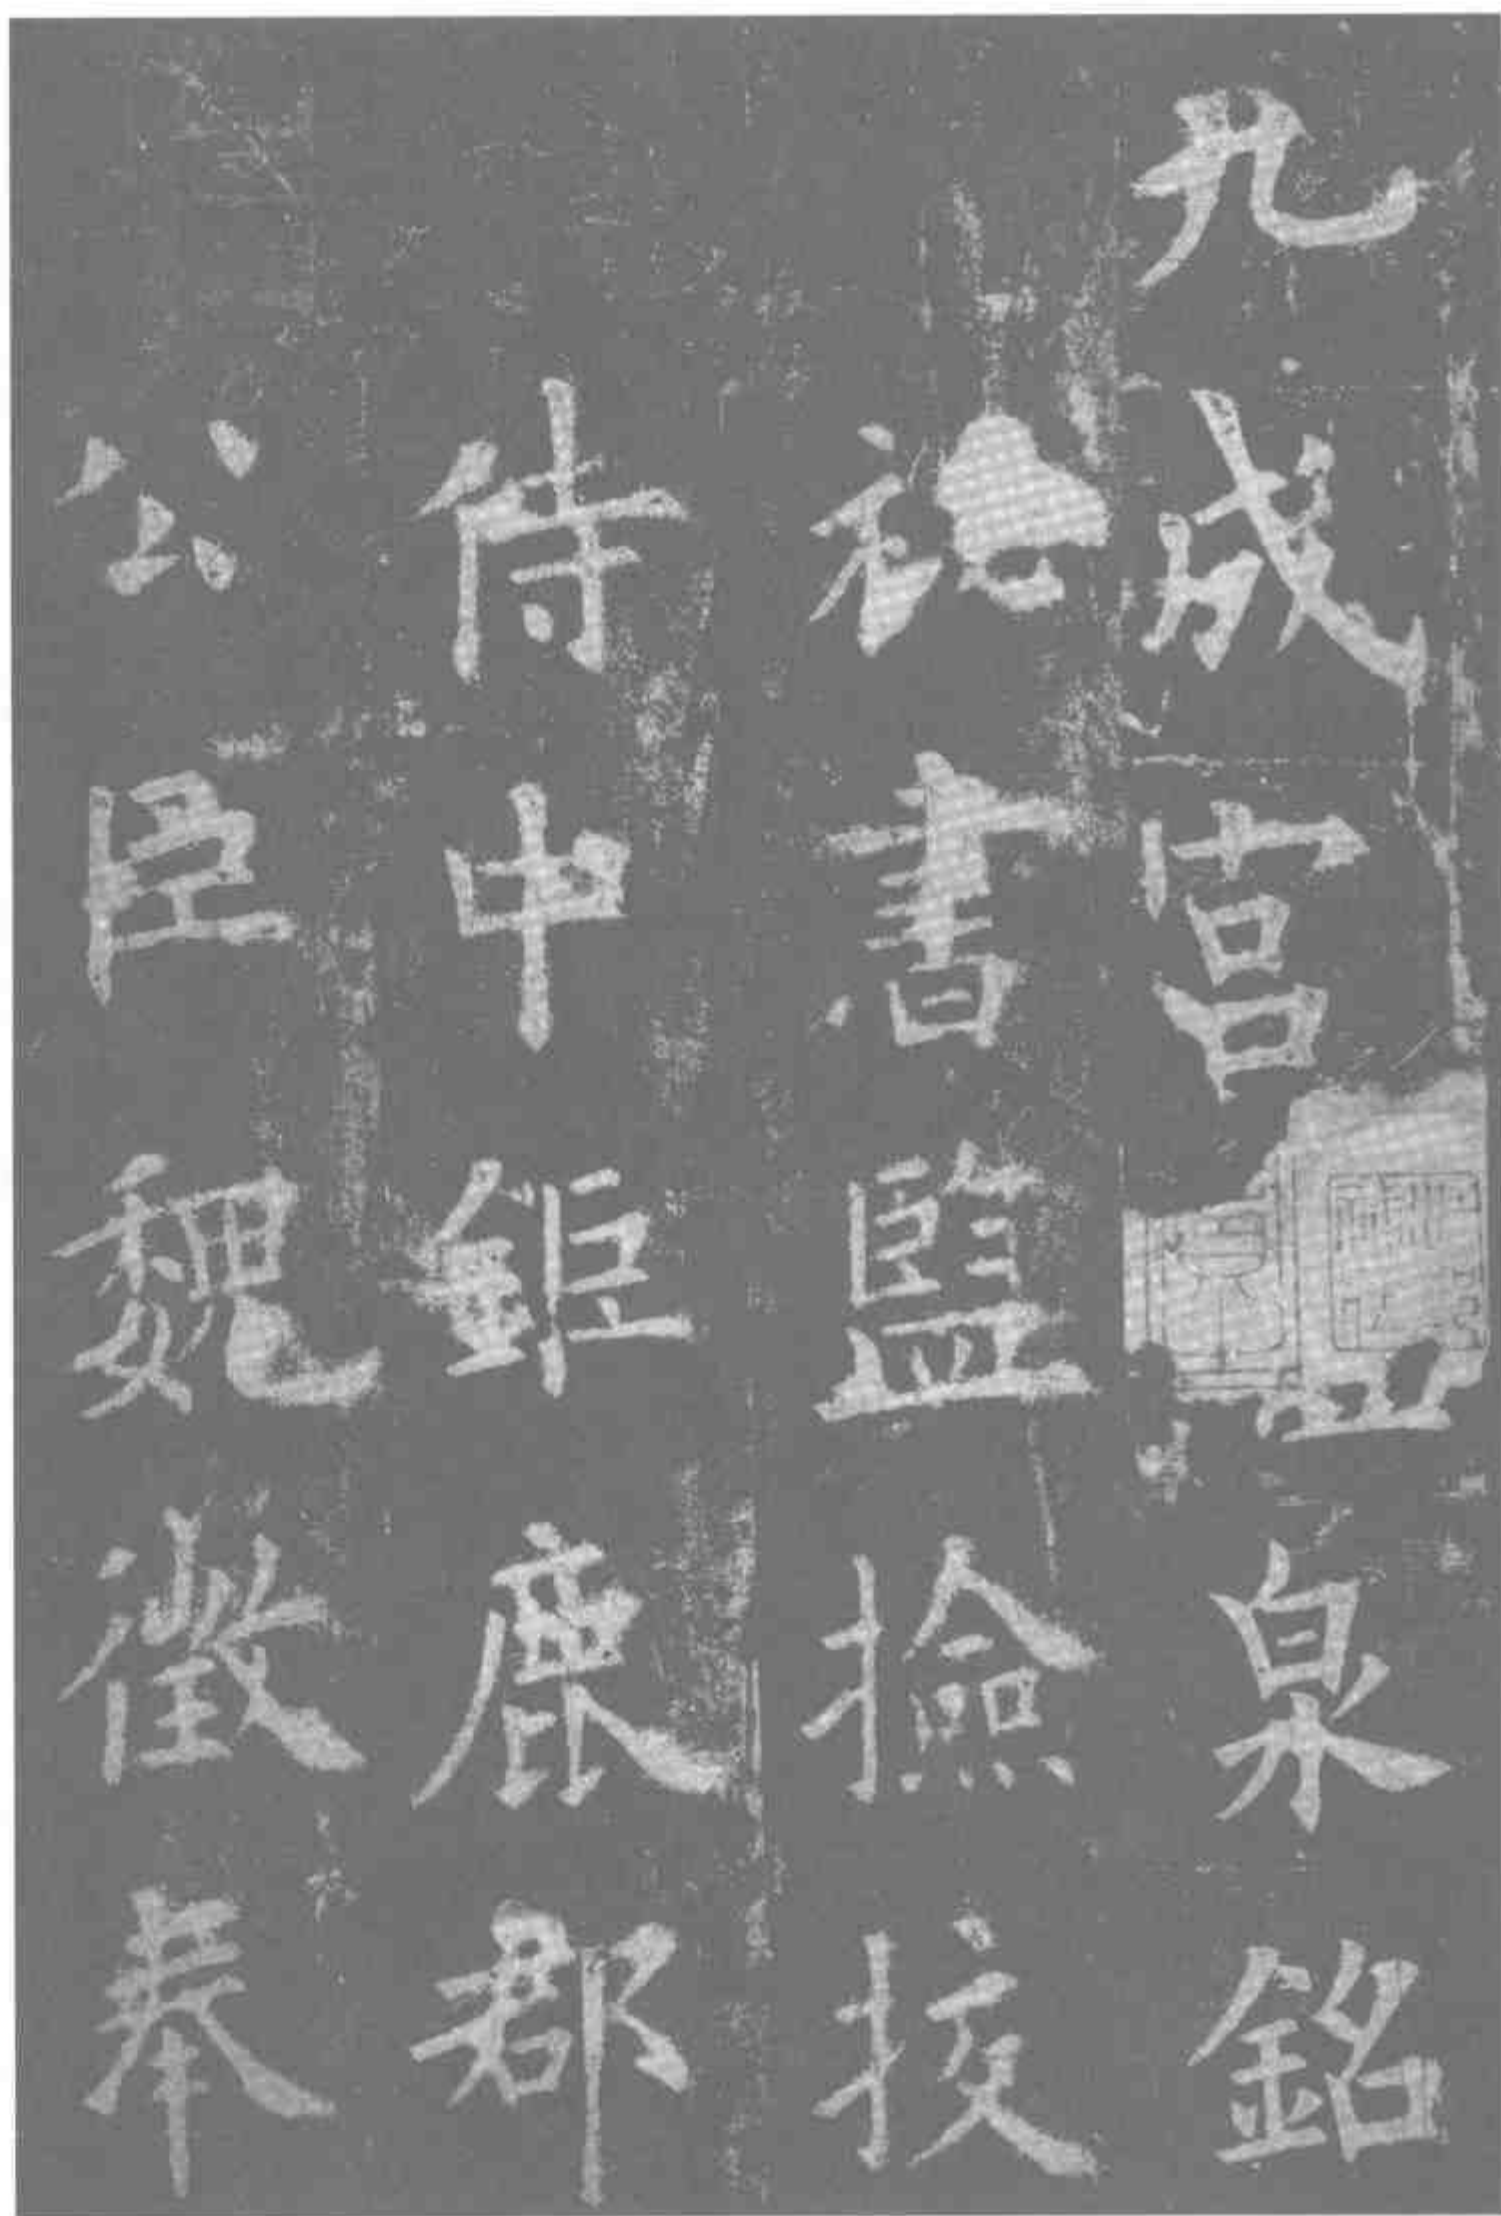 九成宮泉銘
書監撿挍
侍中鉅鹿郡
公臣魏徵奉